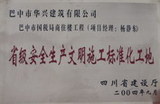 巴中市华兴建筑有限公司
巴中市国税局商住楼工程(项目经理:杨静东)
省级安全生产文明施工标准化工地
四川省建设厅
二00四年九月